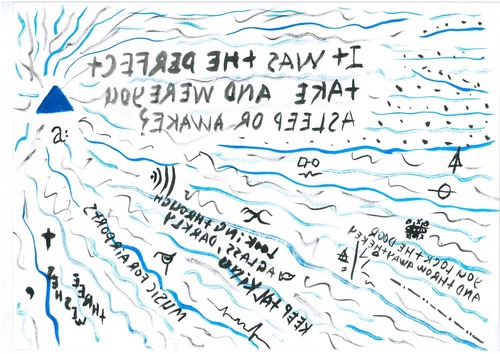 IT WAS THE PERFECT
TAKE AND WERE YOU
ASLEEP OR AWAKE?
a:
LOOKING THROUGH
A GLASS DARKLY
KEEP TALKING
MUSIC FOR AIRPORTS
THREE
YOU LOCK THE DOOR
AND THROW AWAY THE KEY